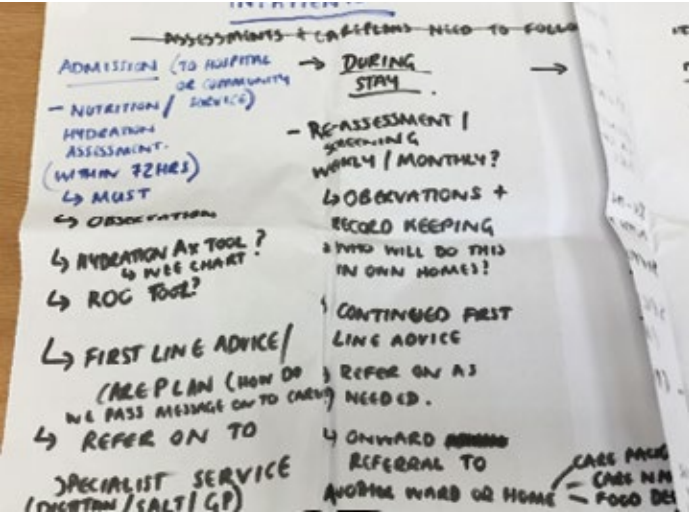 ASSESSMENTS + CAREPLANS NEED TO FOLLOW
ADMISSION (TO HOSPITAL
OR COMMUNITY
SERVICE)
- NUTRITION /
HYDRATION
ASSESSMENT.
(WITHIN 72HRS)
↳ MUST
↳ OBSERVATION
↳ HYDRATION AX TOOL?
↳ WEE CHART?
↳ ROC TOOL?
↳ FIRST LINE ADVICE /
CAREPLAN (HOW DO
WE PASS MESSAGE ON TO CARU?)
↳ REFER ON TO
SPECIALIST SERVICE
(DIETITIAN / SALT / GP)
→ DURING
STAY.
→
- RE-ASSESSMENT /
SCREENING
WEEKLY / MONTHLY?
↳ OBERVATIONS +
RECORD KEEPING
WHO WILL DO THIS
IN OWN HOMES?
CONTINUED FIRST
LINE ADVICE
REFER ON AS
NEEDED.
↳ ONWARD
REFERRAL TO
ANOTHER WARD OR HOME
CARE PACK
- CARE NA
- FOOD DE